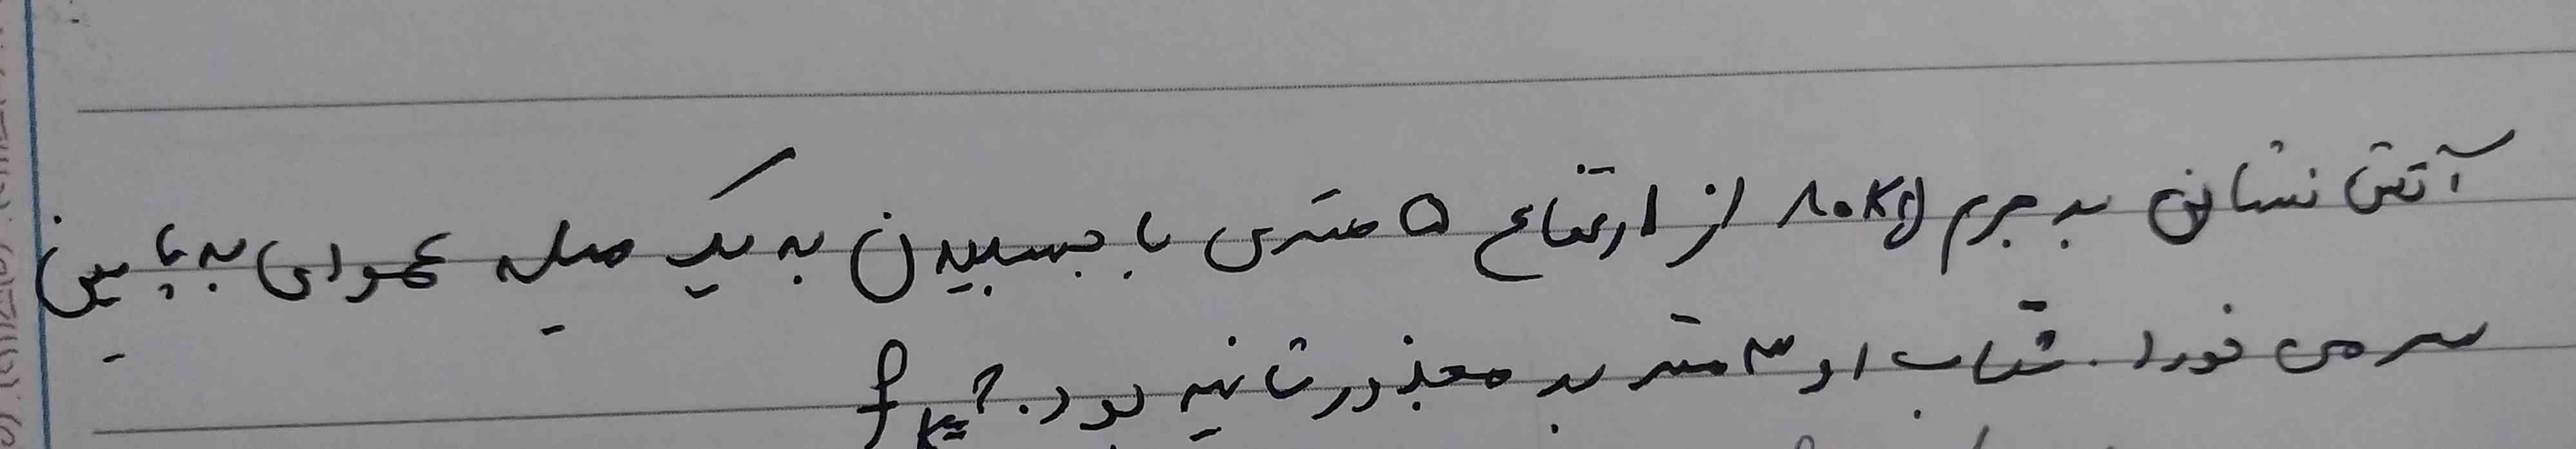 آتش نشانی به جرم ۸۰kg از ارتفاع ۵ متری با چسبیدن به یک میله عمودی به پایین
سر می خورد. شتاب او ۳ متر بر مجذور ثانیه بود. ? = fk